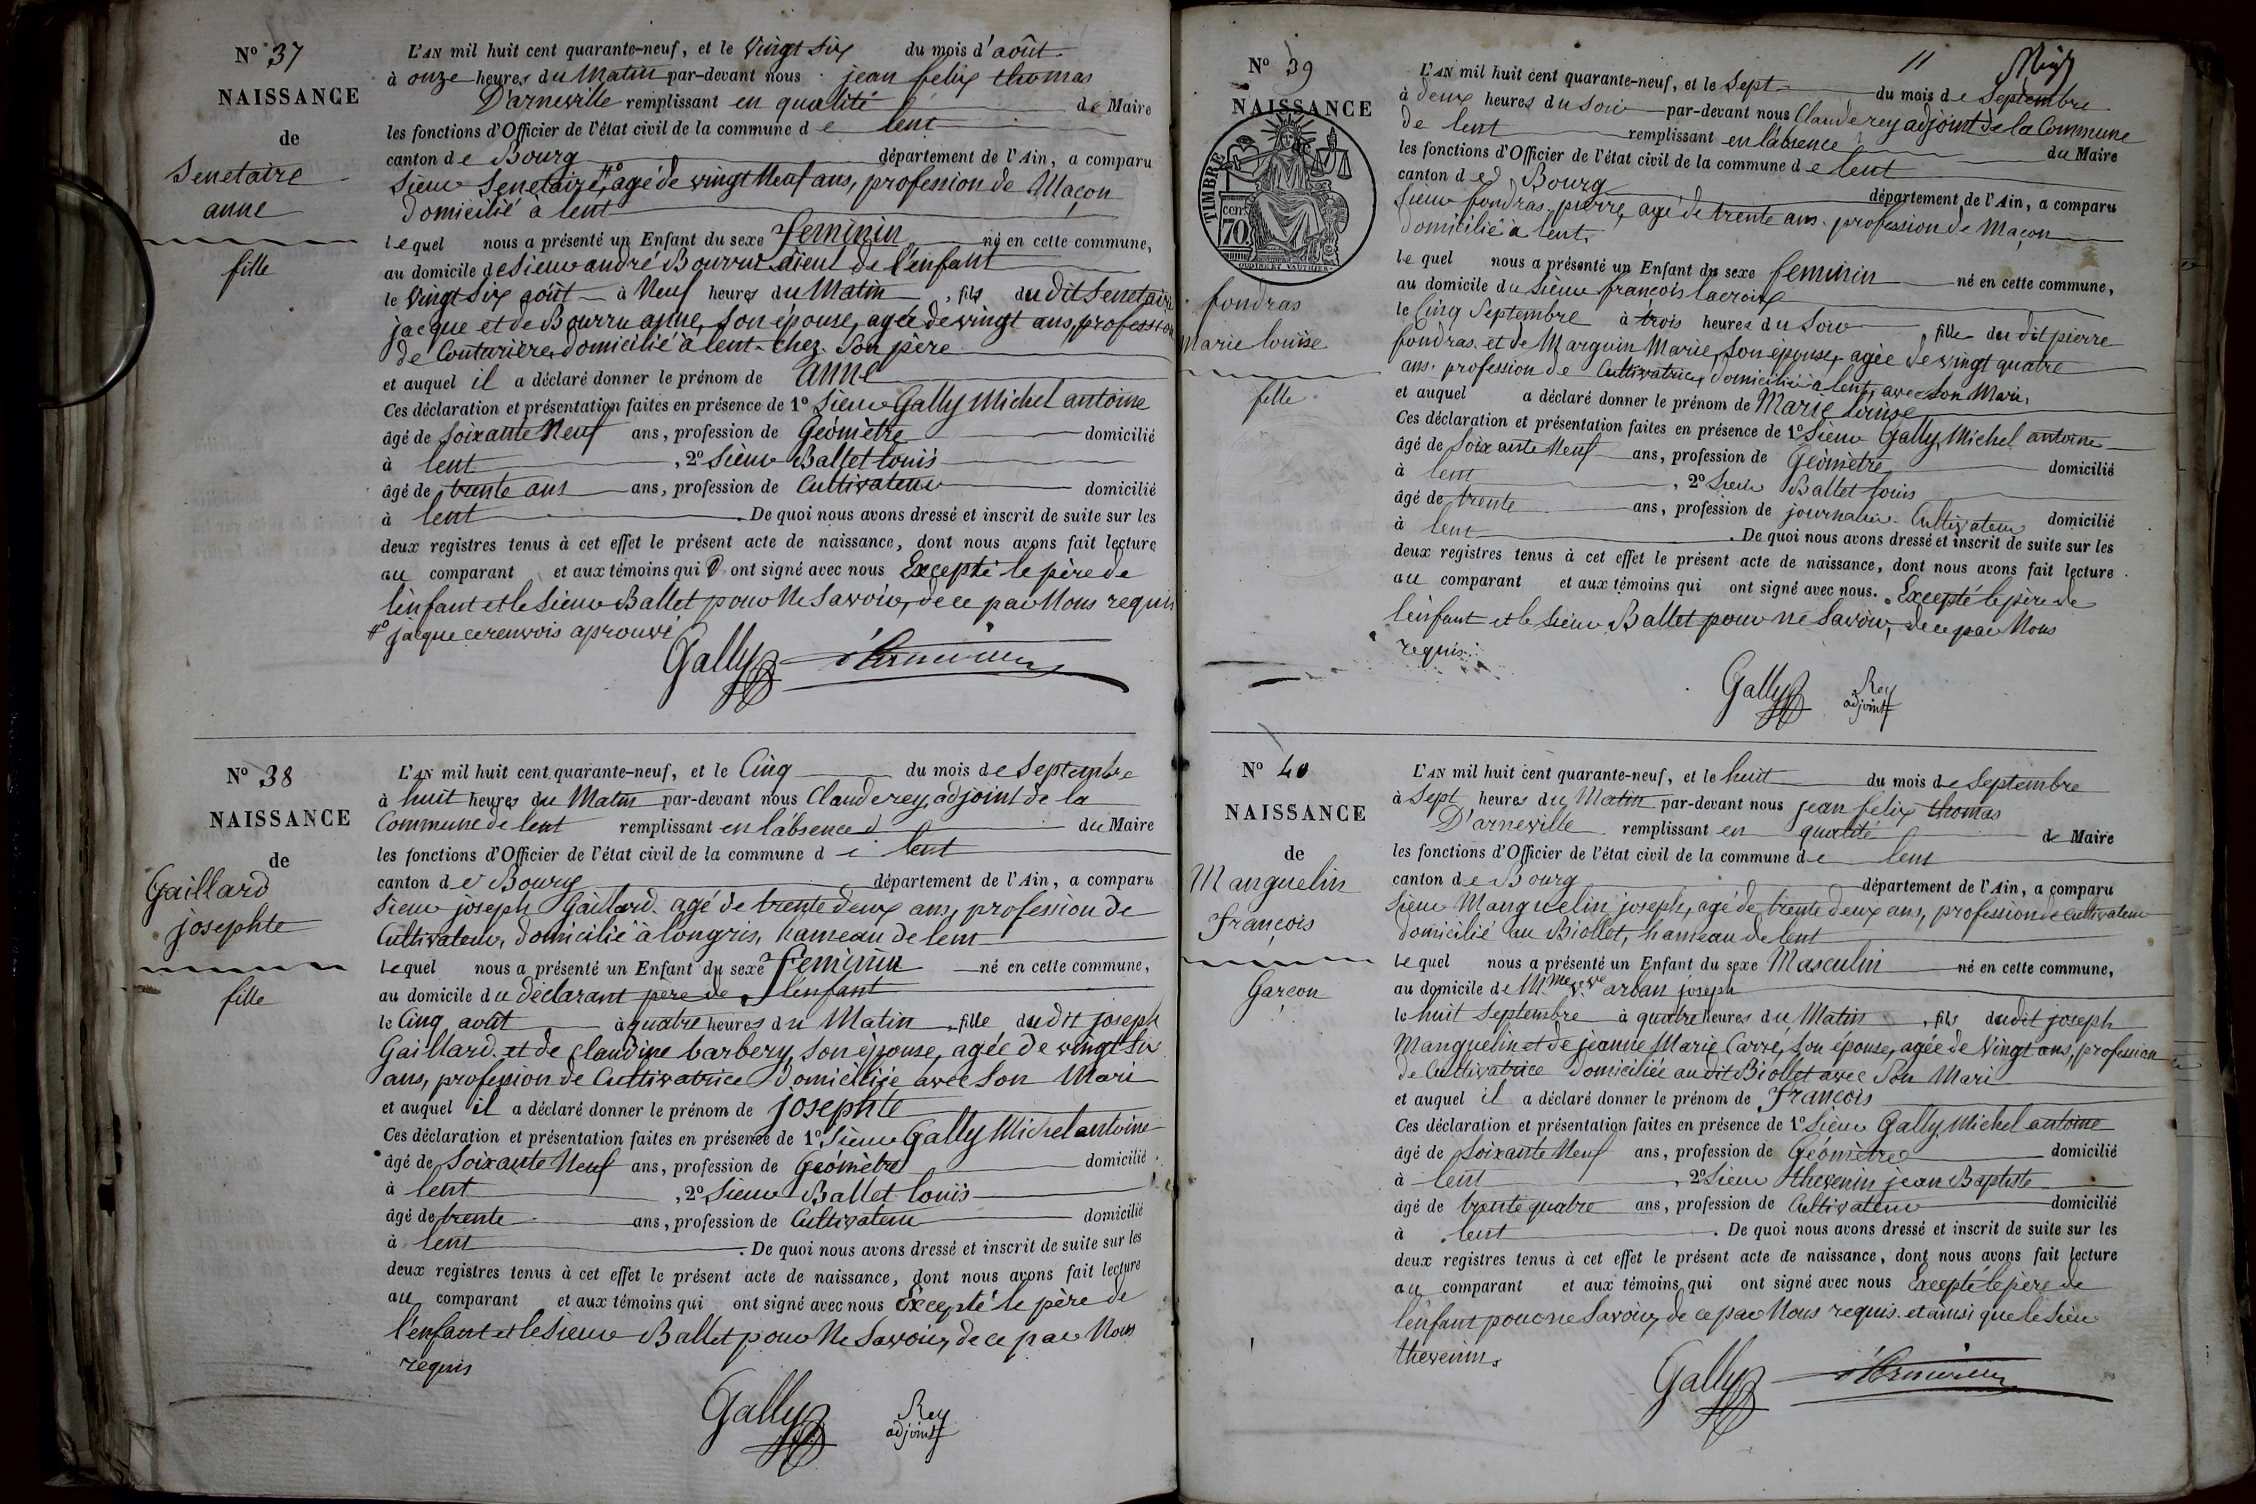 N° 37
NAISSANCE
de
Senetaire
anne
fille
L'AN mil huit cent quarante-neuf, et le Vingt Six du mois d'août
à onze heures du Matin par-devant nous jean felix thomas
D'arneville remplissant en qualité de Maire
les fonctions d'Officier de l'état civil de la commune de lent
canton de Bourg département de l'Ain, a comparu
Sieur Senetaire, #° agé de vingt Neuf ans, profession de Maçon
domicilié à lent
lequel nous a présenté un Enfant du sexe feminin né en cette commune,
au domicile de Sieur andré Bourru aïeul de l'enfant
le Vingt Six août à Neuf heures du Matin, fils du dit Senetaire
jacque et de Bourru anne, son épouse, agée de vingt ans, profession
de Couturière, domicilié à lent chez Son père
et auquel il a déclaré donner le prénom de anne
Ces déclaration et présentation faites en présence de 1° Sieur Gally Michel antoine
âgé de Soixante Neuf ans, profession de Géomètre domicilié
à lent, 2° Sieur Ballet louis
âgé de trente ans ans, profession de Cultivateur domicilié
à lent. De quoi nous avons dressé et inscrit de suite sur les
deux registres tenus à cet effet le présent acte de naissance, dont nous avons fait lecture
au comparant et aux témoins qui ont signé avec nous Excepté le père de
l'enfant et le Sieur Ballet pour Ne Savoir, de ce par Nous requis
#° jacque ce renvois aprouvé
Gally
N° 38
NAISSANCE
de
Gaillard
josephte
fille
L'AN mil huit cent quarante-neuf, et le Cinq du mois de Septembre
à huit heures du Matin par-devant nous Claude rey, adjoint de la
Commune de lent remplissant en l'absence du Maire
les fonctions d'Officier de l'état civil de la commune de lent
canton de Bourg département de l'Ain, a comparu
Sieur joseph Gaillard agé de trente deux ans, profession de
Cultivateur, domicilié à longris, hameau de lent
lequel nous a présenté un Enfant du sexe feminin né en cette commune,
au domicile du déclarant père de l'enfant
le Cinq août à quatre heures du Matin, fille du dit joseph
Gaillard et de Claudine barbery, Son épouse, agée de vingt Six
ans, profession de Cultivatrice domiciliée avec Son Mari
et auquel il a déclaré donner le prénom de josephte
Ces déclaration et présentation faites en présence de 1° Sieur Gally Michel antoine
âgé de Soixante Neuf ans, profession de Géomètre domicilié
à lent, 2° Sieur Ballet louis
âgé de trente ans, profession de Cultivateur domicilié
à lent. De quoi nous avons dressé et inscrit de suite sur les
deux registres tenus à cet effet le présent acte de naissance, dont nous avons fait lecture
au comparant et aux témoins qui ont signé avec nous Excepté le père de
l'enfant et le Sieur Ballet pour Ne Savoir, de ce par Nous
requis
Gally Rey
adjoint
11
N° 39
NAISSANCE
TIMBRE
70 cent
fondras
Marie louise
fille
L'AN mil huit cent quarante-neuf, et le Sept du mois de Septembre
à deux heures du Soir par-devant nous Claude rey adjoint de la Commune
de lent remplissant en l'absence du Maire
les fonctions d'Officier de l'état civil de la commune de lent
canton de Bourg département de l'Ain, a comparu
Sieur fondras, pierre, agé de trente ans, profession de Maçon
domicilié à lent.
lequel nous a présenté un Enfant du sexe feminin né en cette commune,
au domicile du Sieur françois lacroix
le Cinq Septembre à trois heures du Soir, fille du dit pierre
fondras et de Marguin Marie, Son épouse, agée de vingt quatre
ans, profession de Cultivatrice, domiciliée à lent, avec Son Mari,
et auquel a déclaré donner le prénom de Marie louise
Ces déclaration et présentation faites en présence de 1° Sieur Gally, Michel antoine
âgé de Soixante Neuf ans, profession de Géomètre domicilié
à lent, 2° Sieur Ballet louis
âgé de trente ans, profession de journalier Cultivateur domicilié
à lent. De quoi nous avons dressé et inscrit de suite sur les
deux registres tenus à cet effet le présent acte de naissance, dont nous avons fait lecture
au comparant et aux témoins qui ont signé avec nous. Excepté le père de
l'enfant et le Sieur Ballet pour Ne Savoir, de ce par Nous
requis.
Gally Rey
adjoint
N° 40
NAISSANCE
de
Manguelin
françois
Garçon
L'AN mil huit cent quarante-neuf, et le huit du mois de Septembre
à Sept heures du Matin par-devant nous jean felix thomas
D'arneville remplissant en qualité de Maire
les fonctions d'Officier de l'état civil de la commune de lent
canton de Bourg département de l'Ain, a comparu
Sieur Manguelin joseph, agé de trente deux ans, profession de Cultivateur
domicilié au Biollet, hameau de lent
lequel nous a présenté un Enfant du sexe Masculin né en cette commune,
au domicile de M.me V.ve arban joseph
le huit Septembre à quatre heures du Matin, fils du dit joseph
Manguelin et de jeanne Marie Carré, Son épouse, agée de Vingt ans, profession
de Cultivatrice domiciliée au dit Biollet avec Son Mari
et auquel il a déclaré donner le prénom de françois
Ces déclaration et présentation faites en présence de 1° Sieur Gally Michel antoine
âgé de Soixante Neuf ans, profession de Géomètre domicilié
à lent, 2° Sieur thevenin jean Baptiste
âgé de trente quatre ans, profession de Cultivateur domicilié
à lent. De quoi nous avons dressé et inscrit de suite sur les
deux registres tenus à cet effet le présent acte de naissance, dont nous avons fait lecture
au comparant et aux témoins qui ont signé avec nous Excepté le père de
l'enfant pour ne Savoir, de ce par Nous requis. et ainsi que le Sieur
thevenin.
Gally